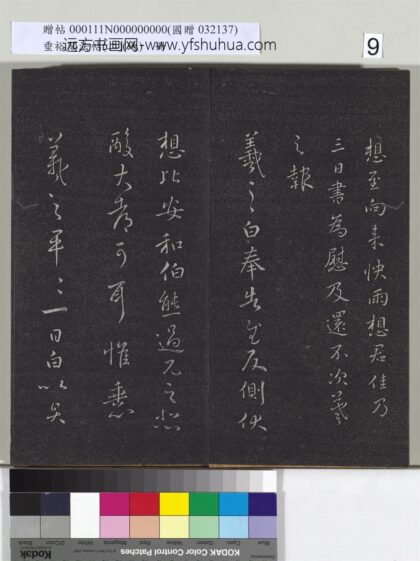 贈帖 000111N000000000(國贈 032137)
远方书画网-www.yfshuhua.com
9
想至向来快雨想君佳乃
三日書為慰及還不次羲
之報
羲之白奉告至反側伏
想比安和伯熊過見之悲
酸大都可耳惟垂
羲之平平一日白
Blue Cyan Green Yellow Red Magenta White 3/Color Black
KODAK Color Control Patches